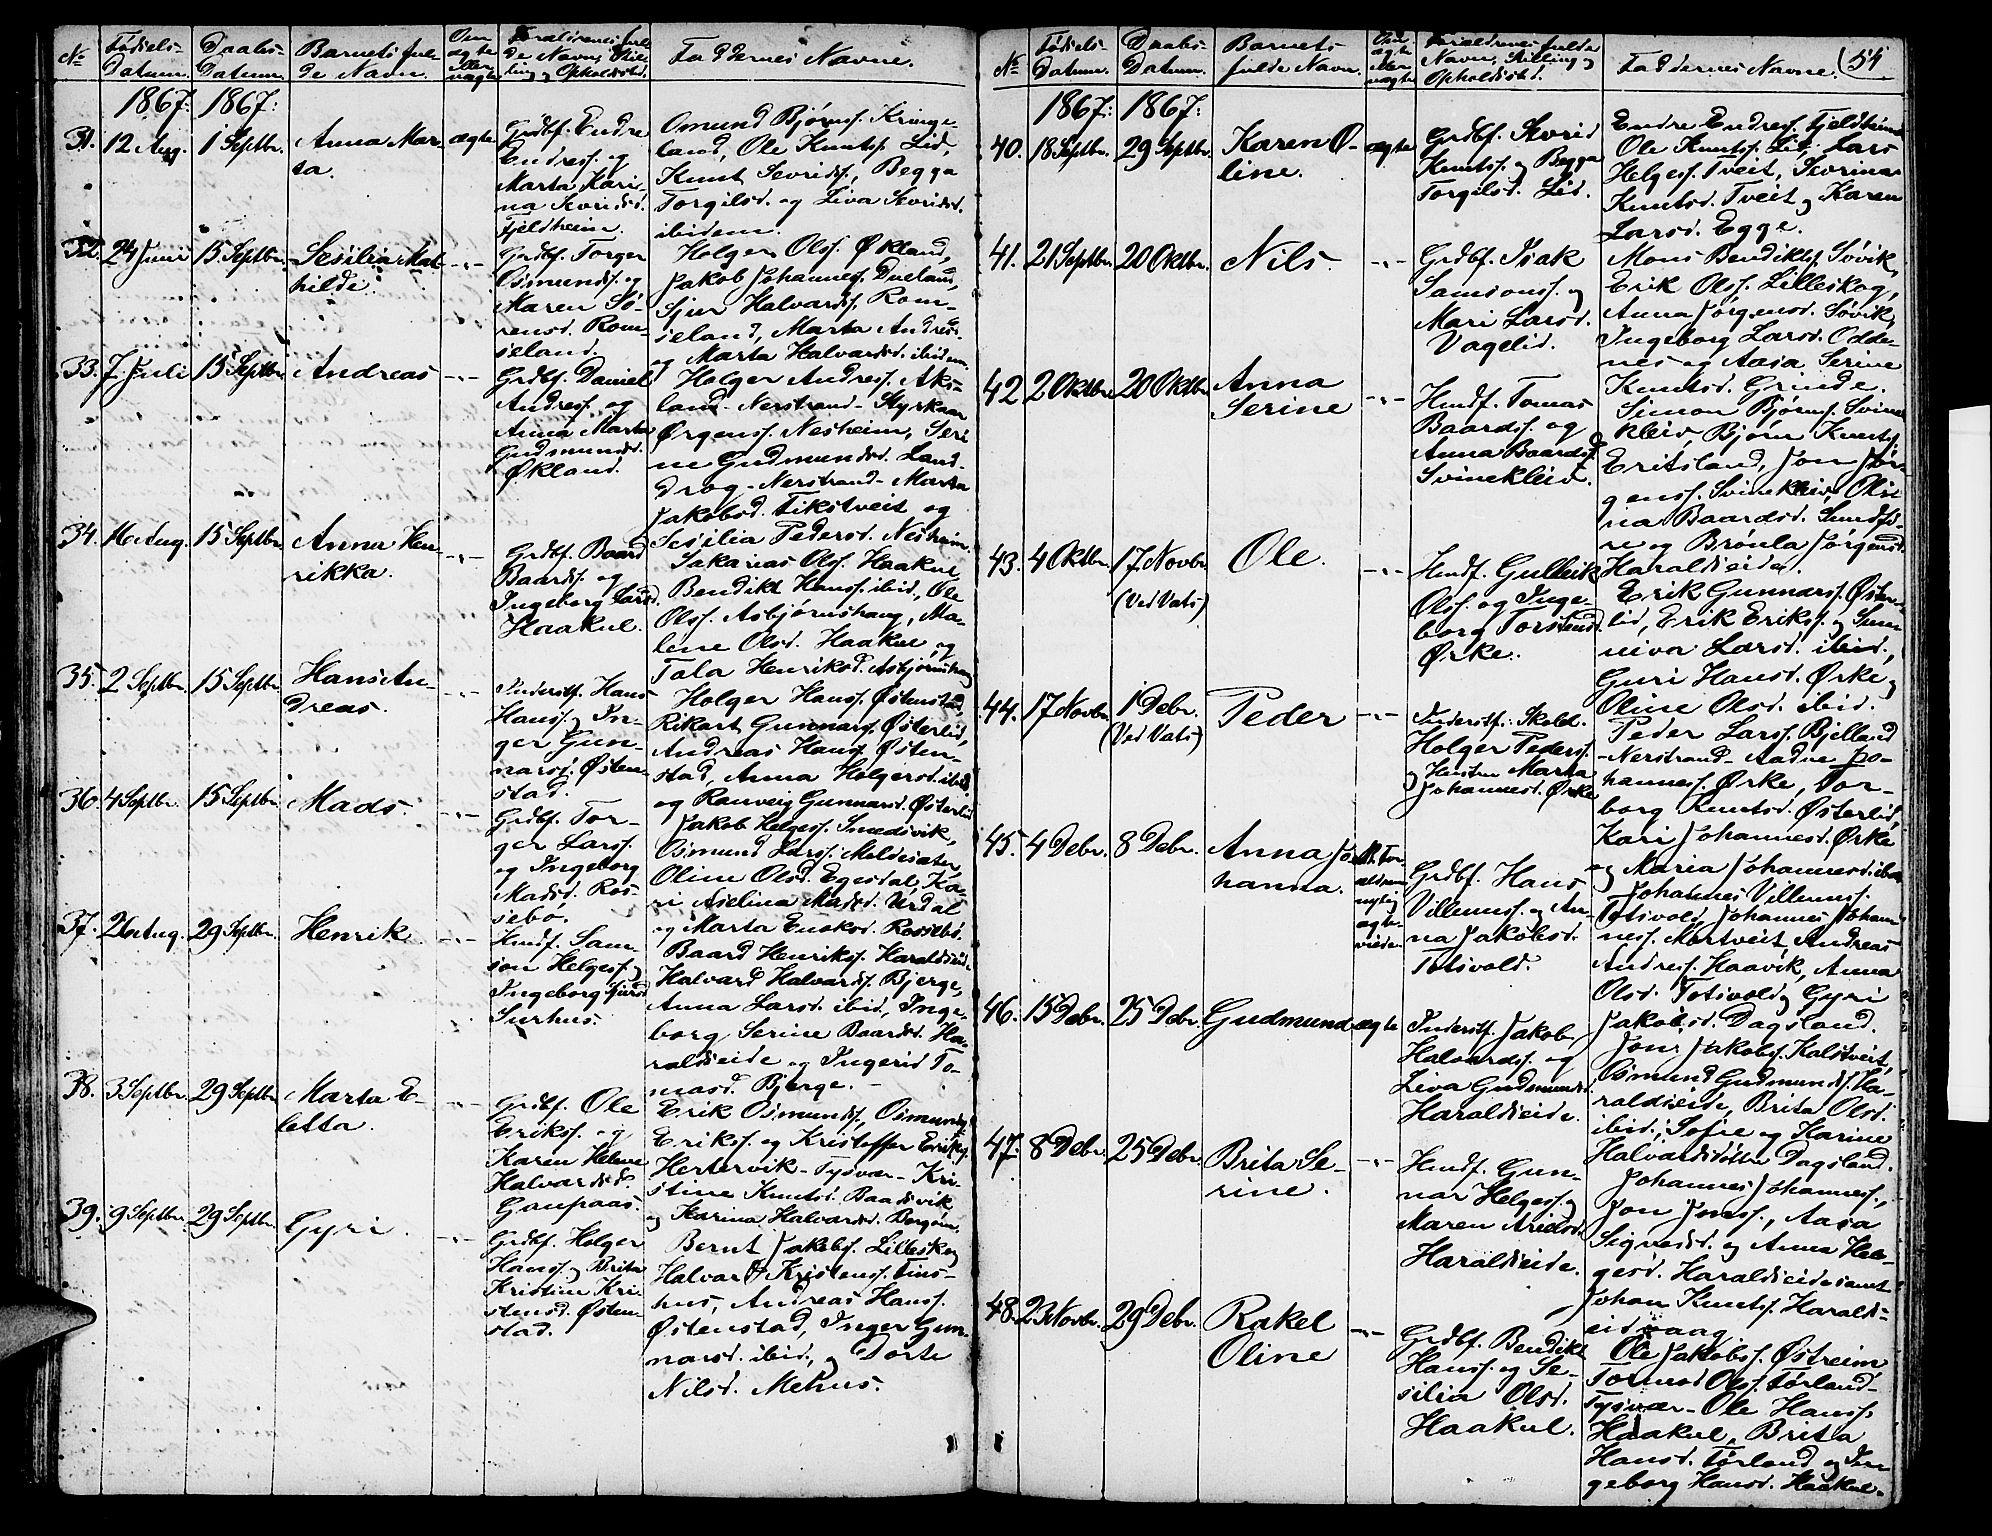 №
Fødsels-
Datum.
Daabs-
Datum.
Barnets ful-
de Navn.
Om
ægte
eller
uægte
Forældrenes ful-
de Navn, Stil-
ling og Opholdssted.
Faddernes Navne.
1867: 1867:
31. 12 Aug. 1 Septbr.
Anna Mar-
ta.
ægte
Grdbf. Endre
Endress. og
Marta Kari-
na Sevridsd.
Fjeldheim.
Omund Bjørns. Kringe-
land, Ole Knuts. Lid,
Knut Sevrids., Begga
Torgilsd. og Liva Sevridsd.
ibidem.
32. 24 Juni 15 Septbr.
Sesilia Mat-
hilde.
-"-
Grdbf. Torger
Osmunds. og
Maren Sø-
rensd. Rom-
seland.
Holger Ols. Økland,
Jakob Johanness. Dueland,
Sjur Halvards. Rom-
seland, Marta Andresd.
og Marta Halvardsd. ibidem.
33. 7 Juli 15 Septbr.
Andreas
-"-
Grdbf. Daniel
Andress. og
Anna Marta
Gudmundsd.
Økland.
Holger Andress. Aks-
land - Nerstrand - Styrkaar
Ørgens. Nesheim, Seri
ne Gudmundsd. Land-
drag - Nerstrand - Marta
Jakobsd. Fikstveit og
Sesilia Pedersd. Nesheim.
34. 16 Aug. 15 Septbr.
Anna Hen-
rikka.
-"-
Grdbf. Baard
Baards. og
Ingeborg Larsd.
Haakul.
Sakarias Ols. Haakul
Bendikt Hanss. ibid., Ole
Olss. Asbjørnshaug, Ma-
lene Olsd. Haakul og
Tala Henriksd. Asbjørnshaug
35. 2 Septbr. 15 Septbr.
Hans An-
dreas.
-"-
Inderstf. Hans
Hanss. og In-
ger Gun-
narsd. Østen-
stad.
Holger Hanss. Østenstad,
Rikart Gunnars. Østerlid,
Andreas Hanss. Østen-
stad, Anna Holgersd. ibid.
og Ranveig Gunnarsd. Østerlid
36. 4 Septbr. 15 Septbr.
Mads.
-"-
Grdbf. Tor-
ger Larss.
og Ingeborg
Madsd. Ros-
sebø.
Jakob Helgess. Smedsvik,
Osmund Larss. Meldesæter,
Oline Olsd. Egesdal, Ka-
ri Aselina Madsd. Urdal
og Marta Enoksd. Rossebø.
37. 26 Aug. 29 Septbr.
Henrik
-"-
Hmdf. Sam-
son Helgess. og
Ingeborg Sjursd.
Surhus.
Baard Henriks. Haraldseide
Halvard Halvards. Bjerge,
Anna Larsd. ibid, Inge-
borg Serine Baardsd. Ha-
raldseide og Ingerid To-
masd. Bjerge. -
38. 3 Septbr. 29 Septbr.
Marta E-
letta.
-"-
Grdbf. Ole
Eriks. og
Karen Helene
Halvardsd.
Gaupaas.
Erik Osmunds., Osmund
Eriks. og Kristoffer Eriks.
Hertervik - Tysvær - Kri-
stine Knutsd. Baadsvik
og Karina Halvardsd. Borgøen.
39. 9 Septbr. 29 Septbr.
Gyri.
-"-
Grdbf. Holger
Hanss. og Brita
Kristine Kri-
stensd. Østen-
stad.
Bernt Jakobs. Lilleskog
Halvard Kristens. Tins-
hus, Andreas Hanss.
Østenstad, Inger Gun-
narsd. ibid, og Dorte
Nilsd. Mehus.
№
Fødsels-
Datum.
Daabs-
Datum.
Barnets
fulde Navn.
Om
ægte
eller
uægte
Forældrenes fulde
Navn, Stilling og
Opholdssted.
Faddernes Navne.
54
1867: 1867:
40. 18 Septbr. 29 Septbr.
Karen O-
line.
ægte
Grdbf. Sevrid
Knutss. og Begga
Torgilsd. Lid.
Endre Endress. Fjeldheim
Ole Knutss. Lid, Lars
Helgess. Tveit, Sevrina
Knutsd. Tveit og Karen
Larsd. Egge.
41. 21 Septbr. 20 Oktbr.
Nils.
-"-
Grdbf. Isak
Samsons. og
Mari Larsd.
Vagelid.
Mons Bendikts. Søvik,
Erik Olss. Lilleskog,
Anna Jørgensd. Søvik,
Ingeborg Larsd. Odde-
nes og Aasa Serine
Knutsd. Grinde.
42. 2 Oktbr. 20 Oktbr.
Anna
Serine
-"-
Hmdf. Tomas
Baards. og
Anna Baardsd.
Svinekleiv.
Simon Bjørns. Svine
kleiv, Bjørn Knuts.
Eritsland, Jon Jør-
gens. Svinekleiv, Oli-
na Baardsd. Smedsø-
re og Brønla Jørgensd.
Haraldseide.
43. 4 Oktbr. 17 Novbr.
(Ved Vats)
Ole.
-"-
Hmdf. Gulleik
Olss. og Inge-
borg Torstensd.
Ørke.
Erik Gunnarss. Øster-
lid, Erik Eriks. og Sun-
niva Larsd. ibid.,
Guri Hansd. Ørke og
Oline Olsd. ibid.
44. 17 Novbr. 1 Debr.
(Ved Vats)
Peder
-"-
Inderstf. Skold.
Holger Peders.
og Hustru Marta
Johannesd. Ørke
Peder Larss. Bjelland
- Nerstrand - Aadne Jo-
hanness. Ørke, Tor-
borg Knutsd. Østerlid,
Kari Johannesd. Ørke
og Maria Johannesd. ibid.
45. 4 Debr. 8 Debr.
Anna Jo
hanna.
M. For-
ældrene
nylig
ægte-
viede.
Grdbf. Hans
Villums. og An-
na Jakobsd.
Totsvold.
Johannes Villums.
Totsvold, Johannes Johan-
ness. Mortveit, Andreas
Andress. Haavik, Anna
Olsd. Totsvold og Gyri
Jakobsd. Dagsland.
46. 15 Debr. 25 Debr.
Gudmund
ægte
Inderstf. Jakob
Halvards. og
Liva Gudmundsd.
Haraldseide.
Jon Jakobs. Kalstveit,
Osmund Gudmunds. Ha-
raldseide, Brita Olsd.
ibid., Sofie og Karine
Halvardsdøttre Dagsland.
47. 8 Debr. 25 Debr.
Brita Se-
rine.
-"-
Hmdf. Gun-
nar Helgess. og
Maren Aridsd.
Haraldseide.
Johannes Johanness.,
Jon Jonss., Aasa
Sigvedsd. og Anna Hel-
gesd. Haraldseide samt
Johan Knuts. Harald-
seidvaag
48. 23 Novbr. 29 Debr.
Rakel
Oline
-"-
Grdbf. Bendikt
Hanss. og Se-
silia Olsd.
Haakul.
Ole Jakobs. Østreim
Tormod Ols. Førland -
Tysvær - Ole Hanss.
Haakul, Brita
Hansd. Førland og In
geborg Hansd. Haakul.